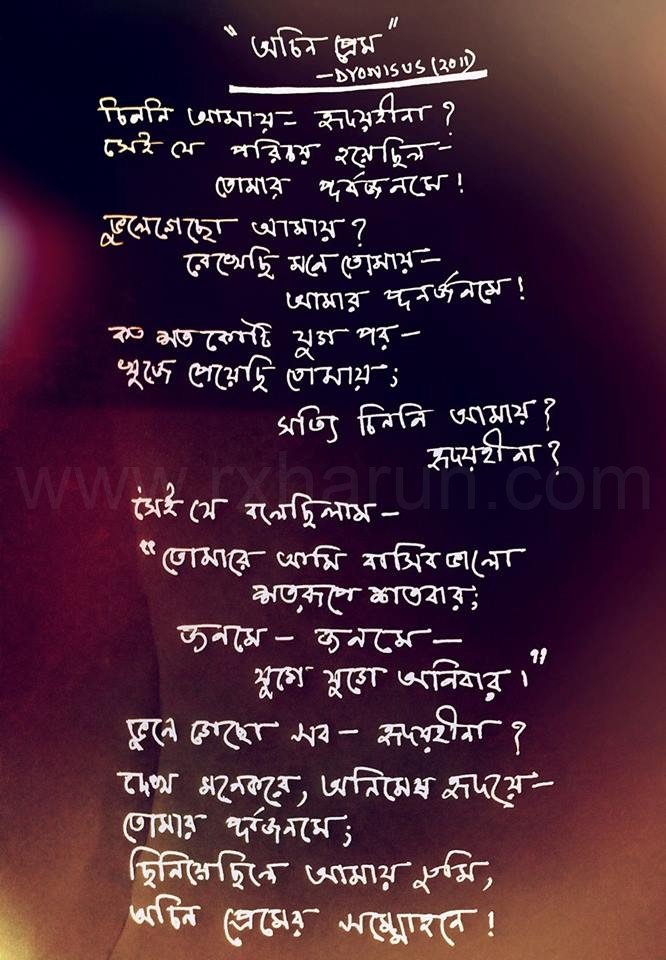 "অচিন প্রেম"
-DYONISUS (2011)
চিননি আমায়- হৃদয়হীনা?
সেই যে পরিচয় হয়েছিল-
তোমার পূর্বজনমে!
ভুলেগেছো আমায়?
রেখেছি মনে তোমায়-
আমার পুনর্জনমে!
কত শত কোটি যুগ পর-
খুজে পেয়েছি তোমায়;
সত্যি চিননি আমায়?
হৃদয়হীনা?
www.rxharun.com
সেই যে বলেছিলাম-
"তোমারে আমি বাসিব ভালো
শতরূপে শতবার;
জনমে- জনমে-
যুগে যুগে অনিবার।"
ভুলে গেছো সব- হৃদয়হীনা?
দেখ মনেকরে, অনিমেষ হৃদয়ে-
তোমার পূর্বজনমে;
ছিনিয়েছিলে আমায় তুমি,
অচিন প্রেমের সম্মোহনে!